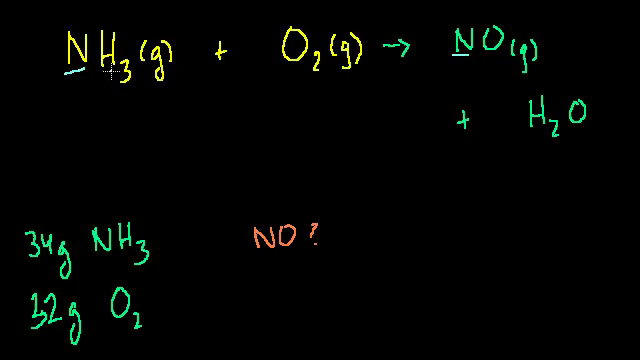 NH₃(g) + O₂(g) → NO(g)
+ H₂O
34g NH₃ NO?
32g O₂